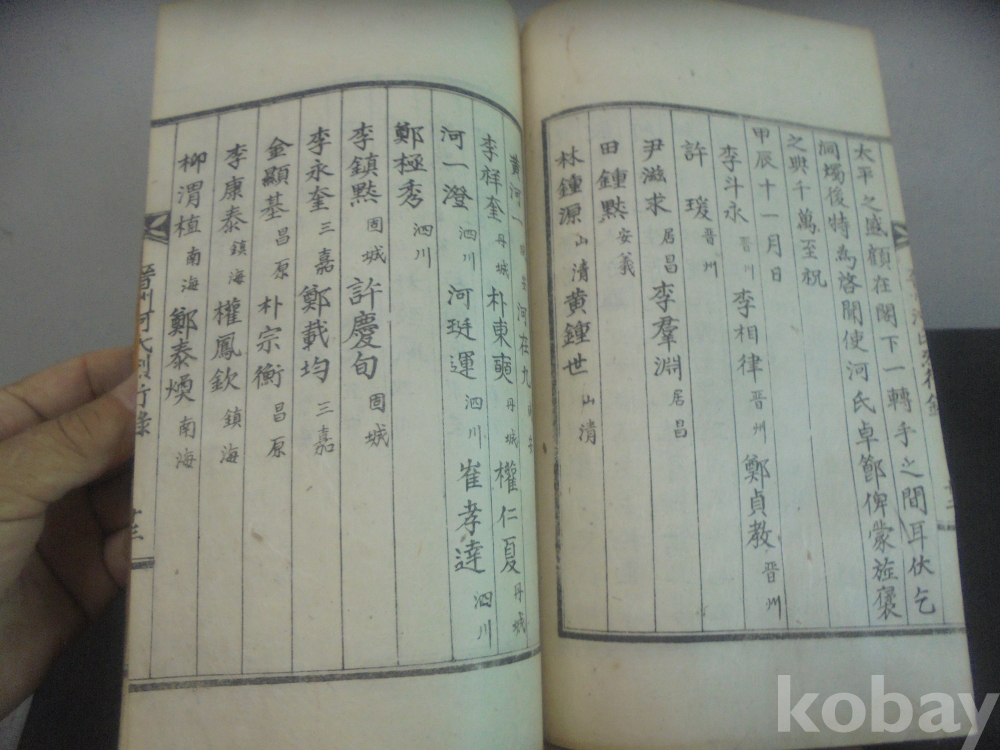 太平之盛顧在閤下一轉手之間耳伏乞
洞燭後特為啓聞使河氏卓節俾蒙旌褒
之典千萬至祝
甲辰十一月日
李斗永 晋州 李相律 晋州 鄭貞教 晋州
許瑗 晋州
尹滋求 居昌 李羣淵 居昌
田鍾㸃 安義
林鍾源 山清 黄鍾世 山清
黄河一 河在九
李祥奎 丹城 朴東奭 丹城 權仁夏 丹城
河一澄 泗川 河珽運 泗川 崔孝達 泗川
鄭極秀 泗川
李鎮㸃 固城 許慶旬 固城
李永奎 三嘉 鄭載均 三嘉
金顯基 昌原 朴宗衡 昌原
李康泰 鎮海 權鳳欽 鎮海
柳渭植 南海 鄭泰煥 南海
晋州河氏烈行錄
kobay